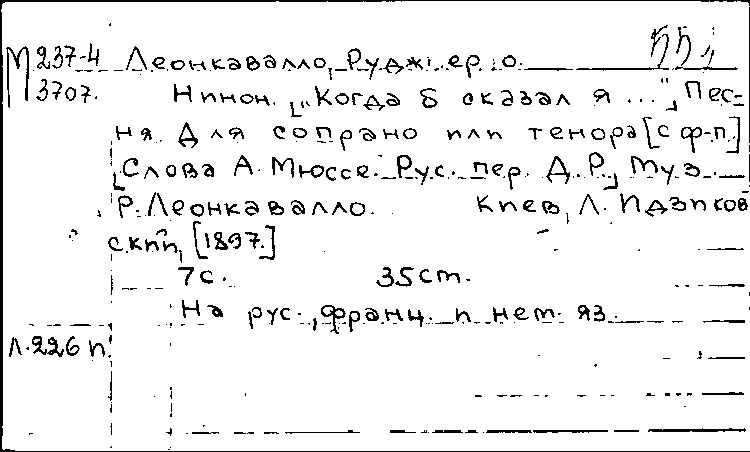 М 237-4 Леонкавалло, Руджіеро.
3707. Нинон. ["Когда б сказал я ..."] Пес-
ня. Для сопрано или тенора [с ф-п.]
[Слова А. Мюссе. Рус. пер. Д. Р.] Муз.
Р. Леонкавалло. Киев, Л. Идзиков
ский, [1897.]
7 с. 35 cm.
На рус., франц. и нем. яз.
Л. 226 п.